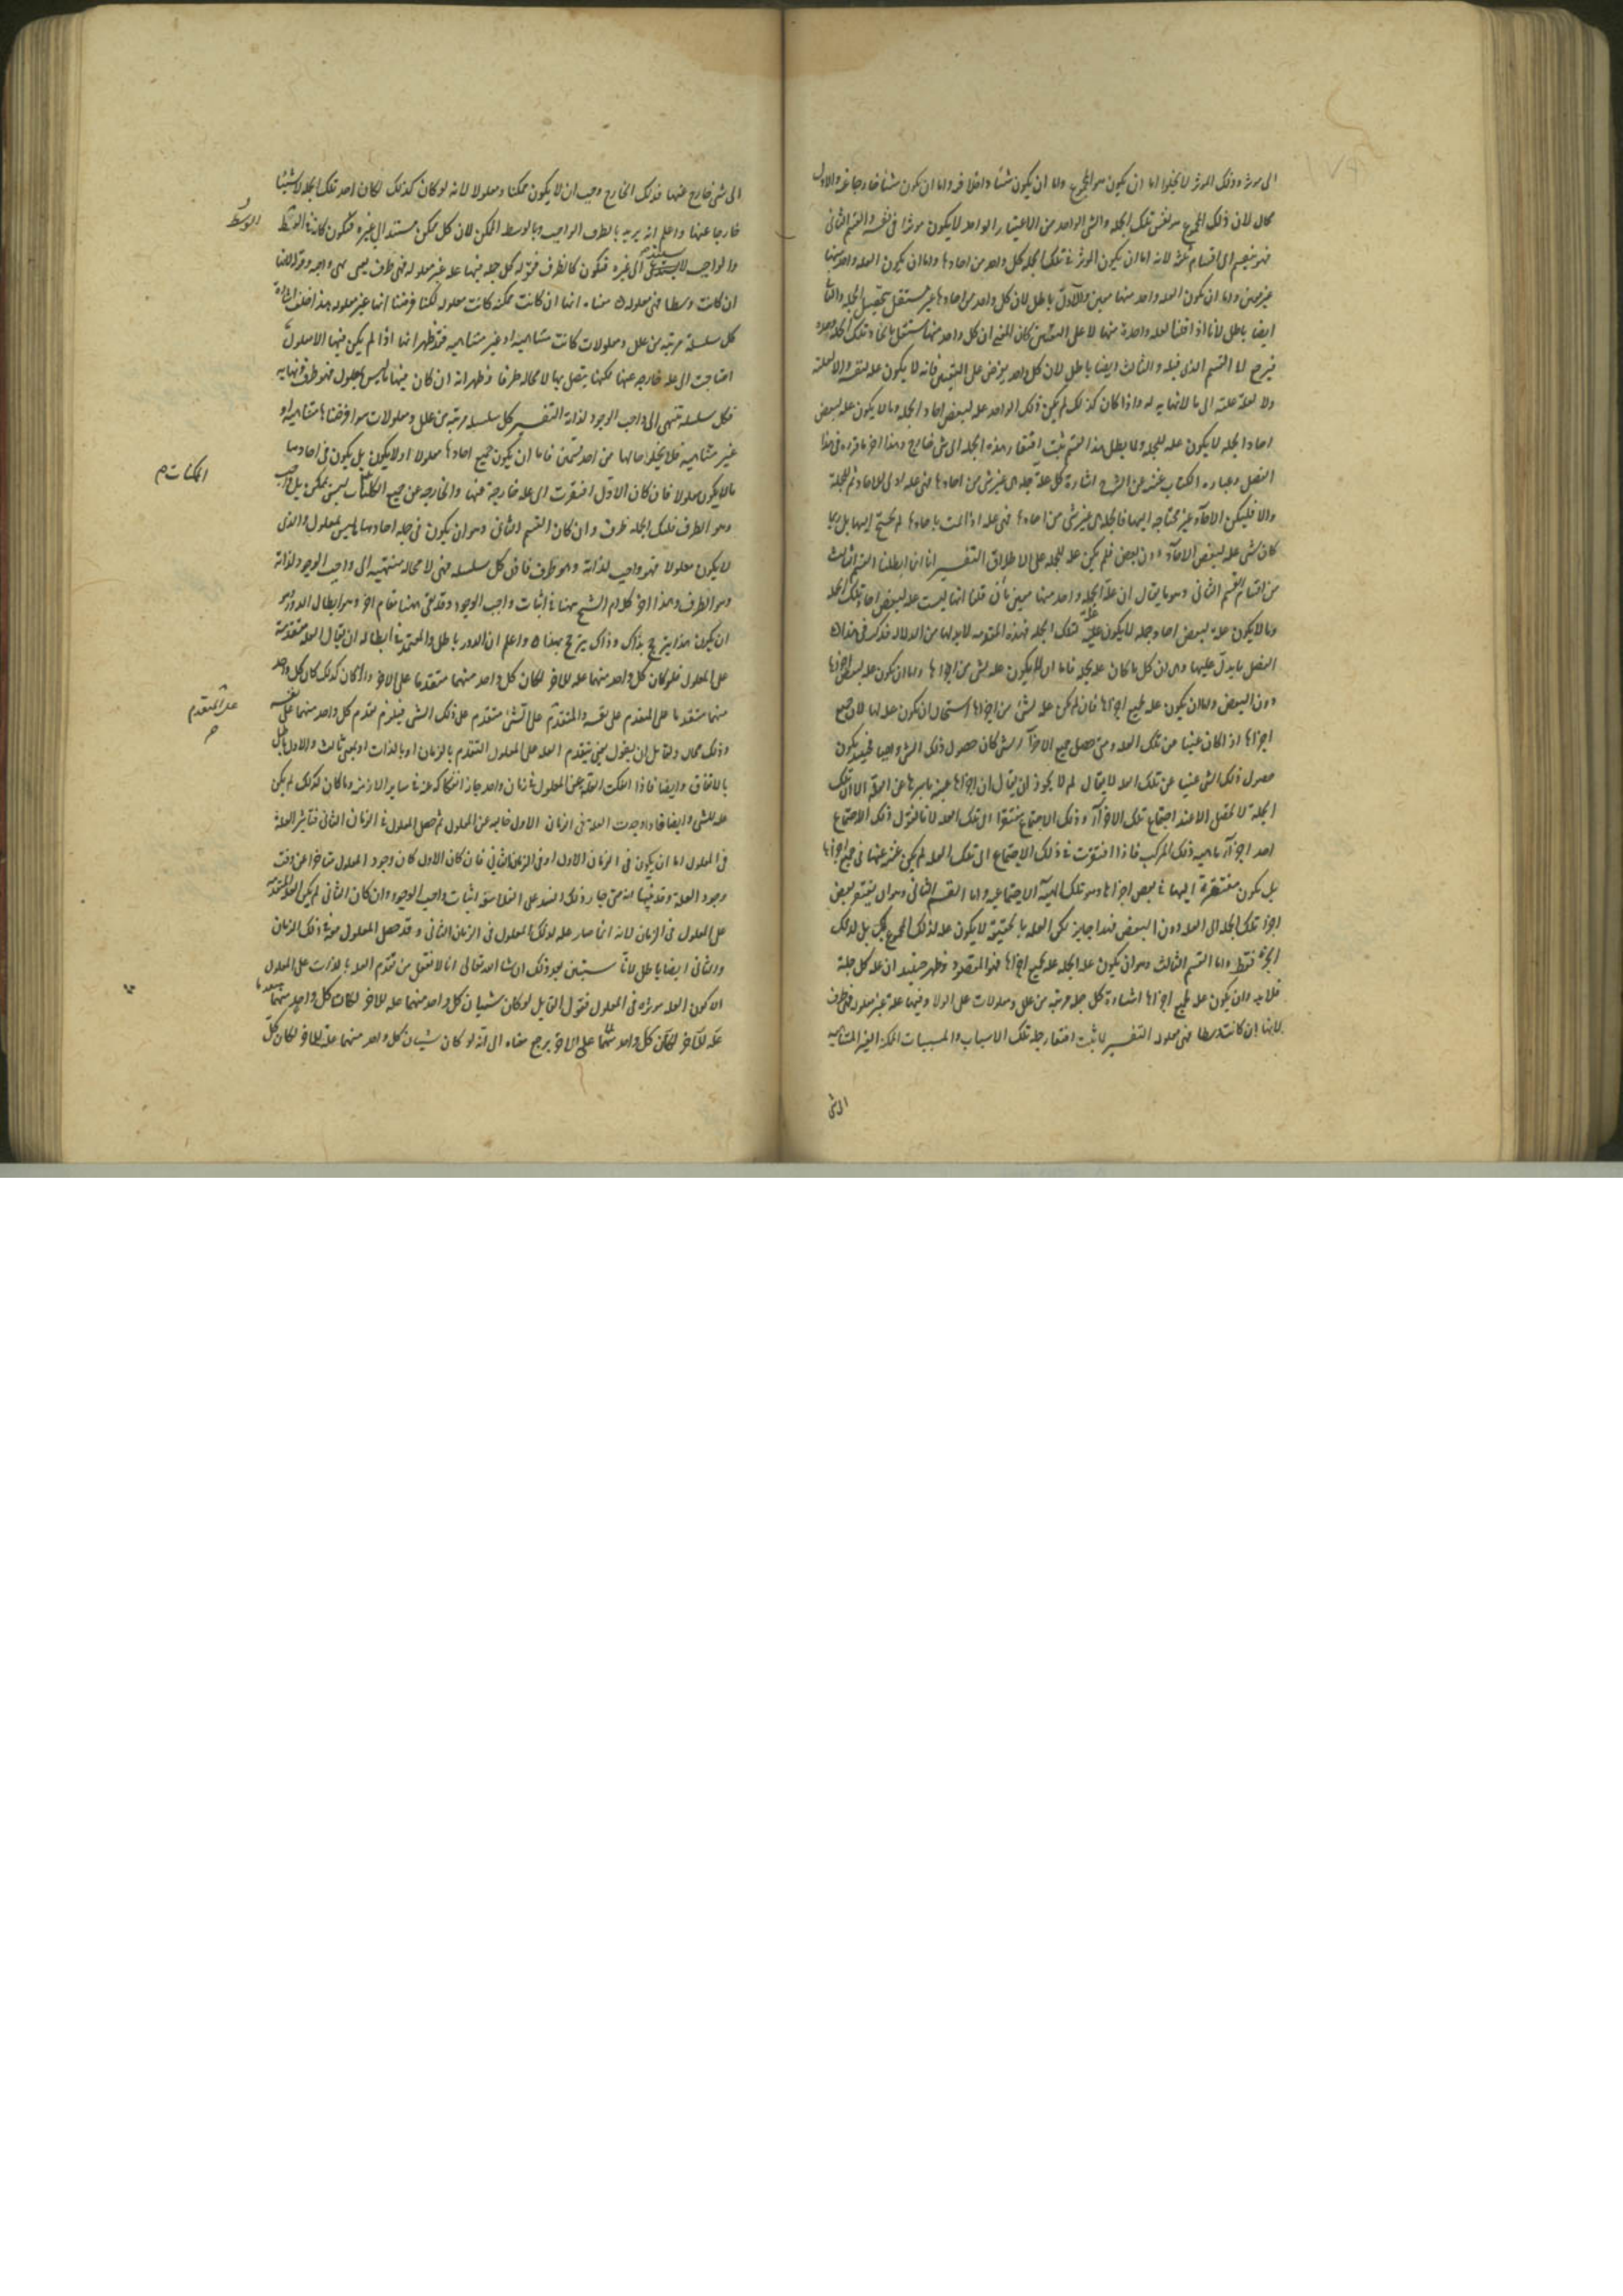 الى موثر وذلك الموثر لا يخلوا اما ان يكون هو المجموع واما ان يكون شيئا داخلا فيه واما ان يكون شيئا خارجا عنه والاول
محال لان ذلك المجموع هو نفس تلك الجملة والشى الواحد من الاعتبار الواحد لا يكون موثرا فى نفسه والقسم الثانى
فهو ينقسم الى اقسام ثلثه لانه اما ان يكون الموثر فى تلك الجملة كل واحد من احادها واما ان يكون العلة واحد منها
غير معين واما ان يكون العلة واحد منها معين والاول باطل لان كل واحد من احادها غير مستقل بتحصيل الجملة والثانى
ايضا باطل لانا اذا اقمنا العلة واحدة منها لا على التعيين كان المعنى ان كل واحد منها مستقل بايجاد تلك الجملة وحده
فيرجع الى القسم الذى قبله والثالث ايضا باطل لان كل واحد يفرض على التعيين فانه لا يكون علة لنفسه ولا لعلته
ولا لعلة علته الى ما لا نهايه له واذا كان كذلك لم يكن ذلك الواحد علة لبعض احاد الجملة وما لا يكون علة لبعض
احاد الجملة لا يكون علة للجملة ولما بطل هذا القسم ثبت افتقار هذه الجملة الى شى خارج وهذا اخر ما قرره فى هذا
الفصل وعبارة الكتاب غنيه عن الشرح اشارة كل علة جملة هى غير شى من احادها فهى علة اولا للاحاد ثم للجملة
والا فليكن الاحاد غير محتاجه اليها فالجملة هى غير شى من احادها فهى علة اذا تمت باحادها لم تحتج اليها بل ربما
كان شى علة لبعض الاحاد دون بعض فلم يكن علة للجملة على الاطلاق التفسير انا انما ابطلنا القسم الثالث
من اقسام القسم الثانى وهو ما يقال ان علة الجملة واحد منها معين بأن قلنا انها ليست علة لبعض احاد تلك الجملة
وما لا يكون علة لبعض احاد جملة لا يكون علة لتلك الجملة فهذه المقدمه لا بد لها من الدلالة فذكر فى هذا
الفصل ما يدل عليها وهى ان كل ما كان علة لجملة فاما ان لا يكون علة لشى من اجزائها واما ان يكون علة لبعض اجزائها
دون البعض واما ان يكون علة لجميع اجزائها فان لم يكن علة لشى من اجزائها استحال ان يكون علة لها لان جميع
اجزائها اذا كان غنيا عن تلك العلة ومتى حصل جميع الاجزاء لشى كان حصول ذلك الشى واجبا فحينئذ يكون
حصول ذلك الشى غنيا عن تلك العلة لا يقال لم لا يجوز ان يقال ان اجزائها غنيه باسرها عن العلة الا ان تلك
الجملة لا تحصل الا عند اجتماع تلك الاجزاء وذلك الاجتماع مفتقرا الى تلك العلة لانا نقول ذلك الاجتماع
احد اجزاء ماهيه ذلك المركب فاذا افتقرت فى ذلك الاجتماع الى تلك العلة لم يكن غنيه عنها فى جميع اجزائها
بل يكون مفتقرة اليها فى بعض اجزائها وهو تلك الهيئة الاجتماعيه واما القسم الثانى وهو ان يفتقر بعض
اجزاء تلك الجملة الى العلة دون البعض فهذا جايز لكن العلة بالحقيقة لا يكون علة لذلك المجموع بل لذلك
الجزء فقط واما القسم الثالث وهو ان يكون علة الجملة علة لجميع اجزائها فهو المقصود وظهر حينئذ ان علة كل جملة
فلا بد وان يكون علة لجميع اجزائها اشارة كل جملة مرتبه من علل ومعلولات على الولا وفيها علة غير معلوله فهى طرف
لانها ان كانت وسطا فهى معلولة التفسير لما ثبت افتقار جملة تلك الاسباب والمسببات الممكنة الغير المتناهيه
الى شى
الى شى خارج عنها فذلك الخارج وجب ان لا يكون ممكنا ومعلولا لانه لو كان كذلك لكان احد تلك الجملة لا شيئا
خارجا عنها واعلم انه يريد بالطرف الواجب وبالوسط الممكن لان كل ممكن مستند الى غيره فيكون كانه فى الوسط
الوسط
والواجب لا يستند الى غيره فيكون كالطرف فقوله كل جملة فيها علة غير معلوله فهى طرف يعنى فهى واجبه وقوله لانها
ان كانت وسطا فهى معلوله معناه انها ان كانت ممكنه كانت معلوله لكنا فرضنا انها غير معلوله هذا خلف اشارة
كل سلسلة مرتبه من علل ومعلولات كانت متناهيه او غير متناهيه فقد ظهر انها اذا لم يكن فيها الا معلول
احتاجت الى علة خارجه عنها لكنها يتصل بها لا محالة طرفا وظهر انه ان كان فيها ما ليس بمعلول فهو طرف ونهايه
فكل سلسلة تنتهى الى واجب الوجود لذاته التفسير كل سلسلة مرتبه من علل ومعلولات سوا فرضناها متناهيه او
غير متناهيه فلا يخلوا حالها من احد قسمين فاما ان يكون جميع احادها معلولا او لا يكون بل يكون فى احادها
ما لا يكون معلولا فان كان الاول افتقرت الى علة خارجة عنها والخارج عن جميع الممكنات ليس بممكن بل واجب
الممكنات م
وهو الطرف فلتلك الجملة طرف وان كان القسم الثانى وهو ان يكون فى جملة احادها ما ليس بمعلول والذى
لا يكون معلولا فهو واجب لذاته وهو طرف فاذن كل سلسلة فهى لا محالة منتهيه الى واجب الوجود لذاته
وهو الطرف وهذا اخر كلام الشيخ ههنا فى اثبات واجب الوجود وقد بقى ههنا مقام اخر وهو ابطال الدور وهو
ان يكون هذا يترجح بذاك وذاك يترجح بهذا واعلم ان الدور باطل والمعتمد فى ابطاله ان يقال العلة متقدمة
على المعلول فلو كان كل واحد منهما علة للاخر لكان كل واحد منهما متقدما على الاخر ولو كان كذلك كان كل واحد
منهما متقدما على المتقدم على نفسه والمتقدم على الشى متقدم على ذلك الشى فيلزم تقدم كل واحد منهما على نفسه
على المتقدم
وذلك محال ولقايل ان يقول نعنى بتقدم العلة على المعلول التقدم بالزمان او بالذات او بمعنى ثالث والاول باطل
بالاتفاق وايضا فاذا انفكت العلة عن المعلول فى زمان واحد جاز انفكاكه عنه فى ساير الازمنه وما كان كذلك لم يكن
علة للشى وايضا فاذا وجدت العلة فى الزمان الاول خاليه عن المعلول ثم حصل المعلول فى الزمان الثانى فتأثير العلة
فى المعلول اما ان يكون فى الزمان الاول او فى الزمان الثانى فان كان الاول كان وجود المعلول متاخرا عن وقت
وجود العلة وقد بينا انه متى جاز ذلك انسد على الفلاسفة اثبات واجب الوجود وان كان الثانى لم يكن العلة متقدمه
على المعلول فى الزمان لانه انما صار علة لذلك المعلول فى الزمان الثانى وقد حصل المعلول معه فى ذلك الزمان
والثانى ايضا باطل لانا سنبين بعد ذلك ان شا الله تعالى انا لا نعقل من تقدم العلة بالذات على المعلول
الا كون العلة موثره فى المعلول فقول القايل لو كان شيان كل واحد منهما علة للاخر لكان كل واحد منهما
علة للاخر لكان كل واحد منهما على الاخر يرجع معناه الى انه لو كان شيان كل واحد منهما علة للاخر لكان كل